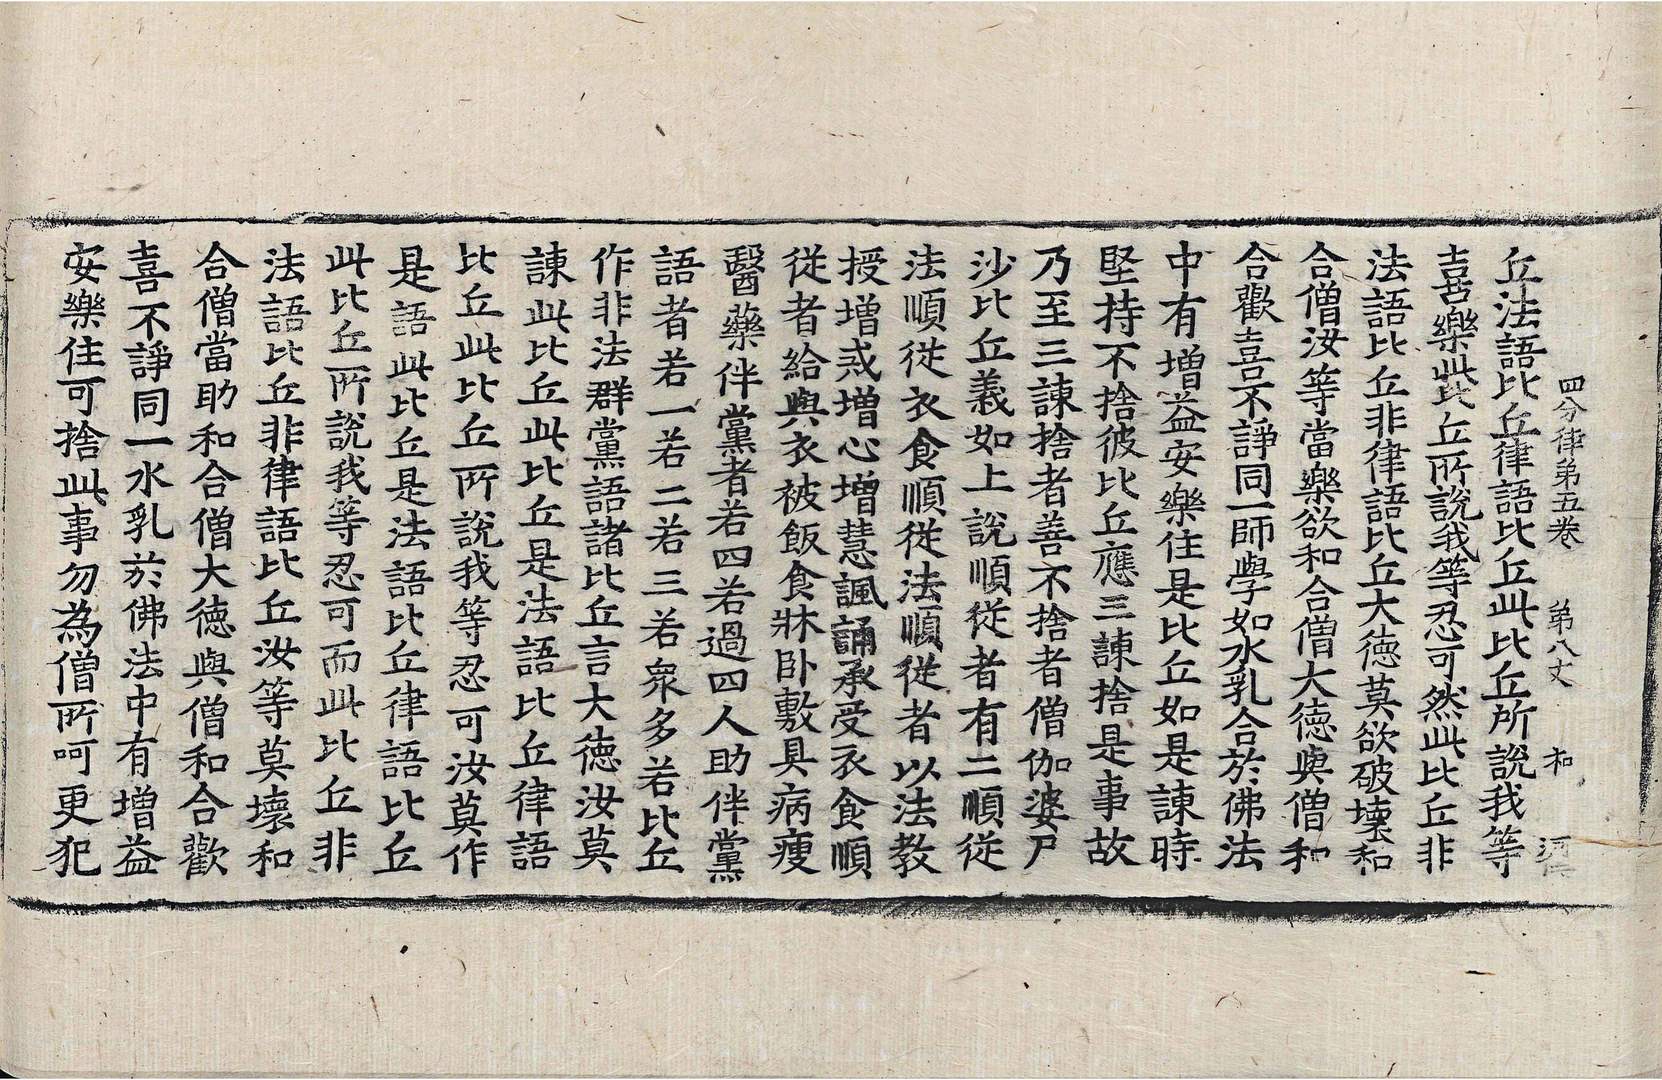 四分律第五卷 第八丈 和
丘法語比丘律語比丘此比丘所說我等
喜樂此比丘所說我等忍可然此比丘非
法語比丘非律語比丘大德莫欲破壞和
合僧汝等當樂欲和合僧大德與僧和
合歡喜不諍同一師學如水乳合於佛法
中有增益安樂住是比丘如是諫時
堅持不捨彼比丘應三諫捨是事故
乃至三諫捨者善不捨者僧伽婆尸
沙比丘義如上說順從者有二順從
法順從衣食順從法順從者以法教
授增戒增心增慧諷誦承受衣食順
從者給與衣被飯食牀臥敷具病瘦
醫藥伴黨者若四若過四人助伴黨
語者若一若二若三若衆多若比丘
作非法群黨語諸比丘言大德汝莫
諫此比丘此比丘是法語比丘律語
比丘此比丘所說我等忍可汝莫作
是語此比丘是法語比丘律語比丘
此比丘所說我等忍可而此比丘非
法語比丘非律語比丘汝等莫壞和
合僧當助和合僧大德與僧和合歡
喜不諍同一水乳於佛法中有增益
安樂住可捨此事勿為僧所呵更犯